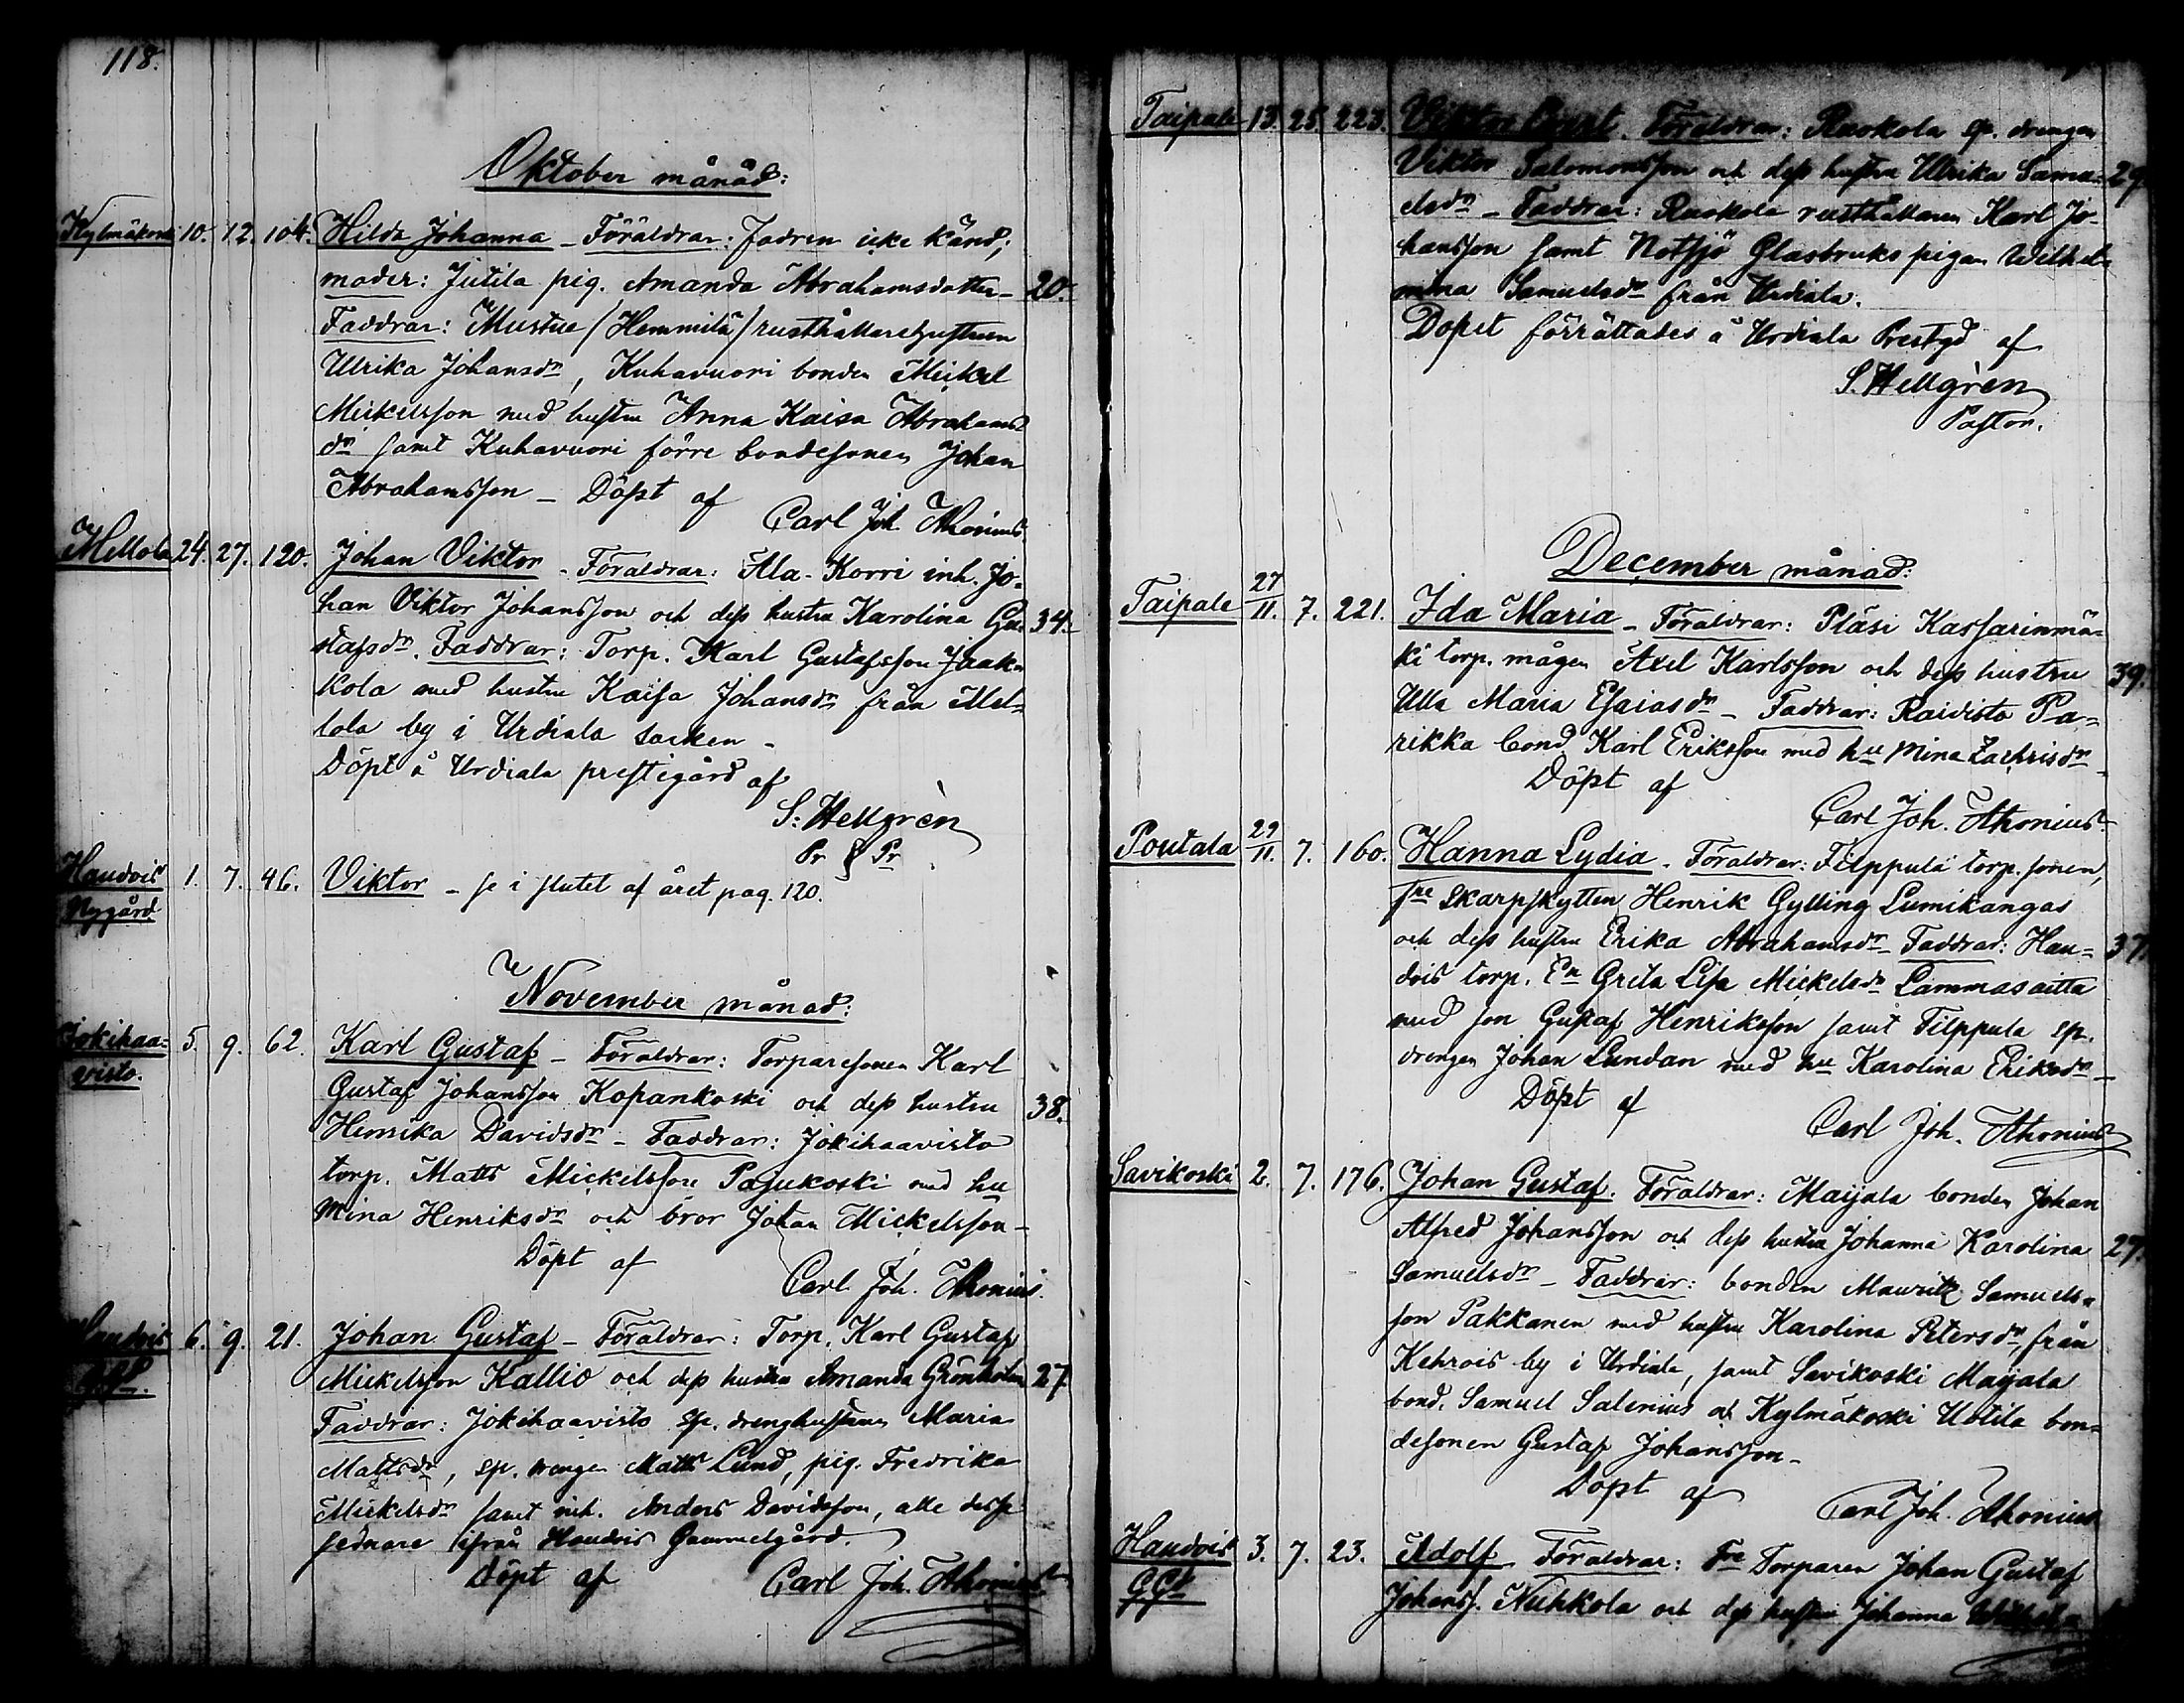 118.
Oktober månad:
Kylmäkoski 10. 12. 104. Hilda Johanna – Föräldrar: fadren icke känd;
moder: Jutila pig. Amanda Abrahamsdotter – 20.
Faddrar: Mustue / Hemmilä / rusthållarehustrun
Ulrika Johansdr, Kuhavuori bonden Mickel
Mickelsson med hustru Anna Kaisa Abrahams-
dr samt Kuhavuori förre bondesonen Johan
Abrahamsson – Döpt af
Carl Joh. Ahonius
Mellola 24. 27. 120. Johan Viktor – Föräldrar: Ala-Korri inh. Jo-
han Viktor Johansson och dess hustru Karolina Gu- 34.
stafsdr. Faddrar: Torp. Karl Gustafsson Jaak-
kola med hustru Kaisa Johansdr från Mel-
lola by i Urdiala socken –
Döpt å Urdiala prestegård af
S. Hellgrèn
Pr Pr
Haudois 1. 7. 46. Viktor – se i slutet af året pag. 120.
Nygård
November månad:
Jokihaa- 5. 9. 62. Karl Gustaf – Föräldrar: Torparesonen Karl
visto. Gustaf Johansson Kopankoski och dess hustru 38.
Henrika Davidsdr – Faddrar: Jokihaavisto
torp. Matts Mickelsson Pajukoski med hu
Mina Henriksdr och bror Johan Mickelsson –
Döpt af
Carl Joh. Ahonius.
Haudois 6. 9. 21. Johan Gustaf – Föräldrar: Torp. Karl Gustaf
Mickelsson Kallio och dess hustru Amanda Grönholm 27.
Faddrar: Jokihaavisto sp. dränghustrun Maria
Mattsdr, sp. drengen Matts Lund, pig. Fredrika
Mickelsdr samt inh. Anders Davidsson, alle desse
sednare ifrån Haudois Gammelgård.
Döpt af Carl Joh. Ahonius
Taipale 13. 25. 223. Viktor Föräldrar: Ruokola sp. drengen
Viktor Salomonsson och dess hustru Ulrika Samu- 29.
elsdr – Faddrar: Ruokola rusthållaren Karl Jo-
hansson samt Notsjö Glasbruks pigan Wilhel-
mina Samuelsdr från Urdiala.
Dopet förrättades å Urdiala Prestgd af
S. Hellgrèn
Pastor.
December månad:
Taipale 27/11. 7. 221. Ida Maria – Föräldrar: Pläsi Kassarinmä-
ki torp. mågen Axel Karlsson och dess hustru 39.
Ulla Maria Esaiasdr – Faddrar: Raidisto Pa-
rikka bond. Karl Eriksson med hu Mina Zachrisdr –
Döpt af
Carl Joh. Ahonius
Poutala 29/11. 7. 160. Hanna Lydia. Föräldrar: Filppula torp. sonen,
fre Skarpskytten Henrik Gylling Lumikangas
och dess hustru Erika Abrahamsdr – Faddrar: Hau- 37.
dois torp. En Greta Lisa Mickelsdr Lammasaitta
med son Gustaf Henriksson samt Filppula sp.
drengen Johan Lundan med hu Karolina Eriksdr –
Döpt af
Carl Joh. Ahonius
Savikoski 2. 7. 176. Johan Gustaf. Föräldrar: Maijala bonden Johan
Alfred Johansson och dess hustru Johanna Karolina 27.
Samuelsdr – Faddrar: bonden Mauritz Samuels-
son Pakkanen med hustru Karolina Petersdr från
Kehrois by i Urdiala, samt Savikoski Maijala
bond. Samuel Salenius och Kylmäkoski Uotila bon-
desonen Gustaf Johansson –
Döpt af
Carl Joh. Ahonius
Haudois 3. 7. 23. Adolf Föräldrar: Fre Torparen Johan Gustaf
GGd Johanss. Nuhkola och dess hustru Johanna